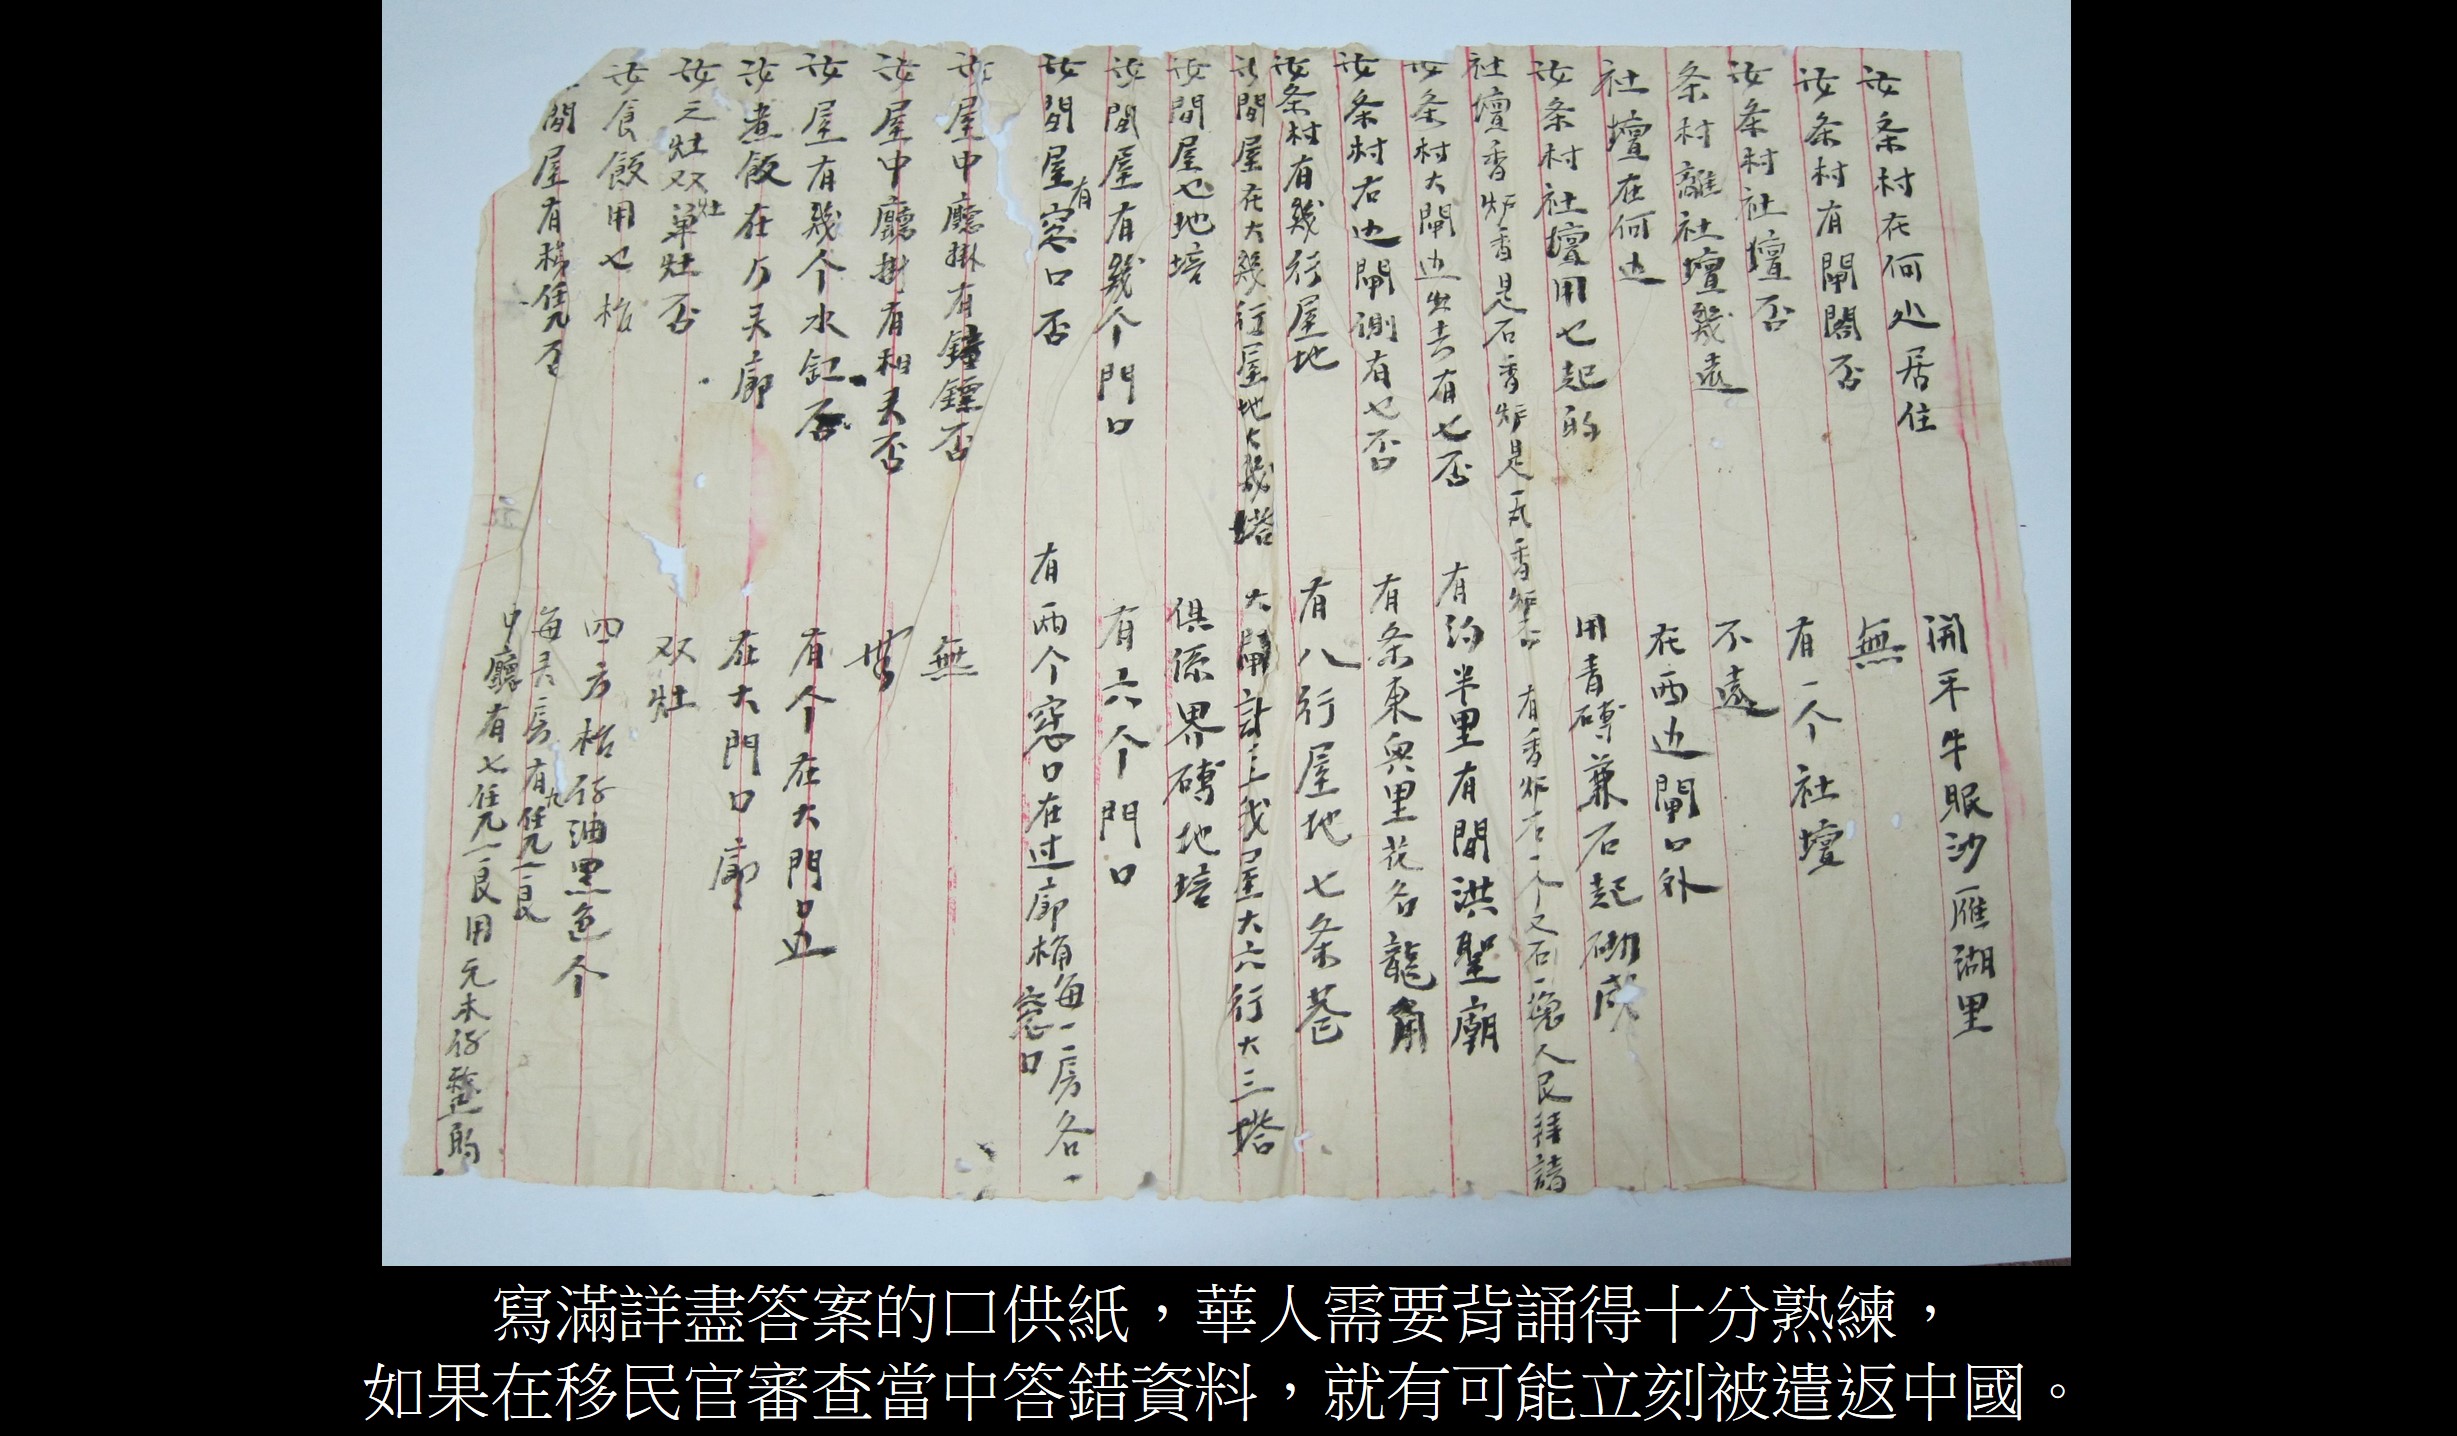 汝条村在何处居住 開平牛眠沙雁湖里
汝条村有閘閣否 無
汝条村社壇否 有一个社壇
条村離社壇幾遠 不遠
社壇在何边 在西边閘口外
汝条村社壇用乜起的 用青磚兼石起砌成
社壇香炉香是石香炉是瓦香炉否 有香炉石一个又石一塊人民拜請
汝条村大閘边出去有乜否 有約半里有間洪聖廟
汝条村右边閘側有乜否 有条東輿里花名龍角
汝条村有幾行屋地 有八行屋地七条巷
汝間屋在大幾行屋地大幾塔 大閘計三我屋大六行大三塔
汝間屋乜地塔 俱係界磚地塔
汝間屋有幾个門口 有六个門口
汝間屋有窓口否 有两个窓口在过廊桷每一房各一窓口
汝屋中廳掛有鐘鏢否 無
汝屋中廳掛有相灵否
汝屋有幾个水缸否 有个在大門口边
汝煮飯在方灵廊 在大門口廊
汝三灶双灶单灶否 双灶
汝食飯用乜枱 四方枱仔油黑色个
間屋有梯凭否 每灵房有九凭一良
中廳有七凭一良用元木仔整的
寫滿詳盡答案的口供紙，華人需要背誦得十分熟練，
如果在移民官審查當中答錯資料，就有可能立刻被遣返中國。